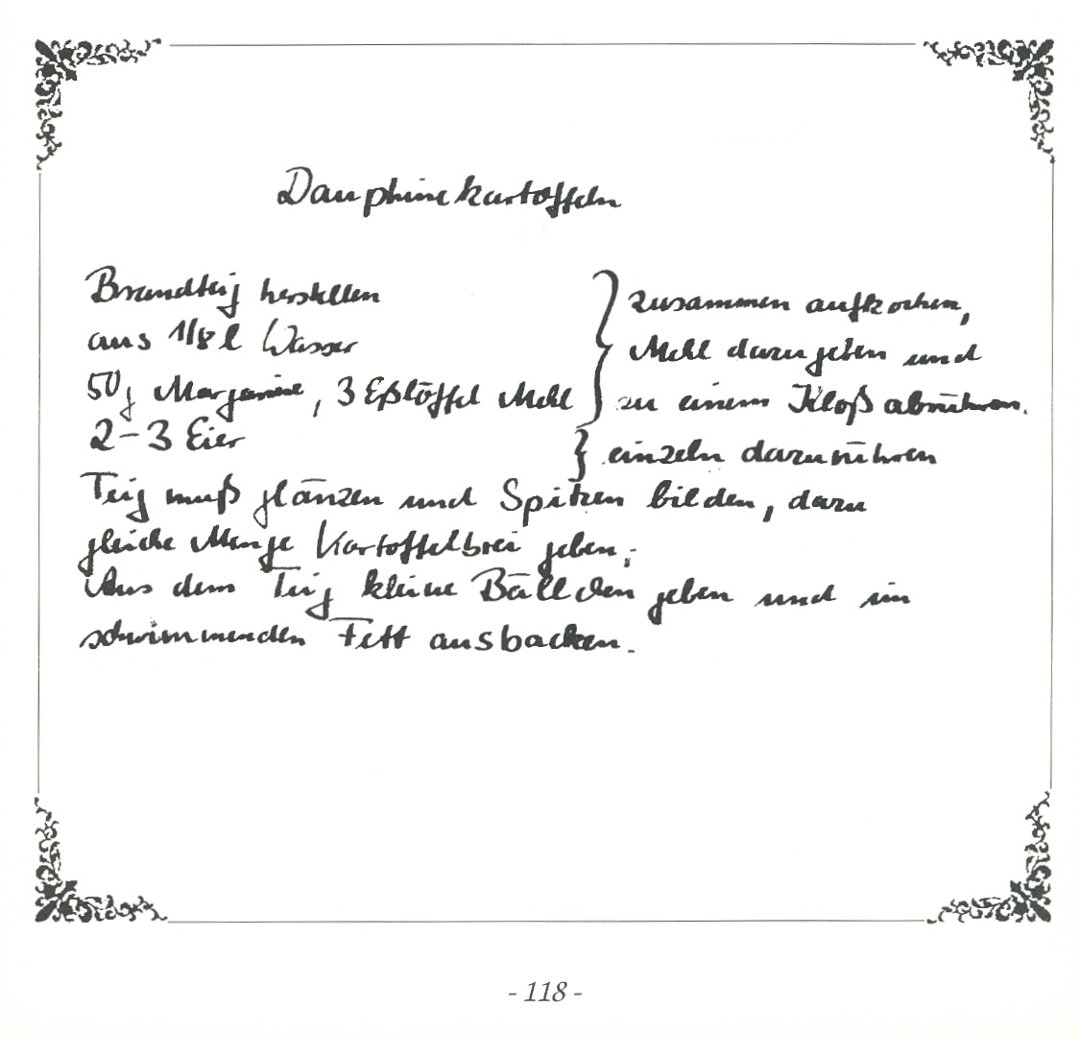 Dauphinekartoffeln
Brandteig herstellen
aus 1/8 l Wasser
50g Margarine, 3 Eßlöffel Mehl
} zusammen aufkochen,
Mehl dazugeben und
zu einem Kloß abrühren.
2-3 Eier } einzeln darunrühren
Teig muß glänzen und Spitzen bilden, dazu
gleiche Menge Kartoffelbrei geben;
Aus dem Teig kleine Bällchen geben und im
schwimmenden Fett ausbacken.
- 118 -